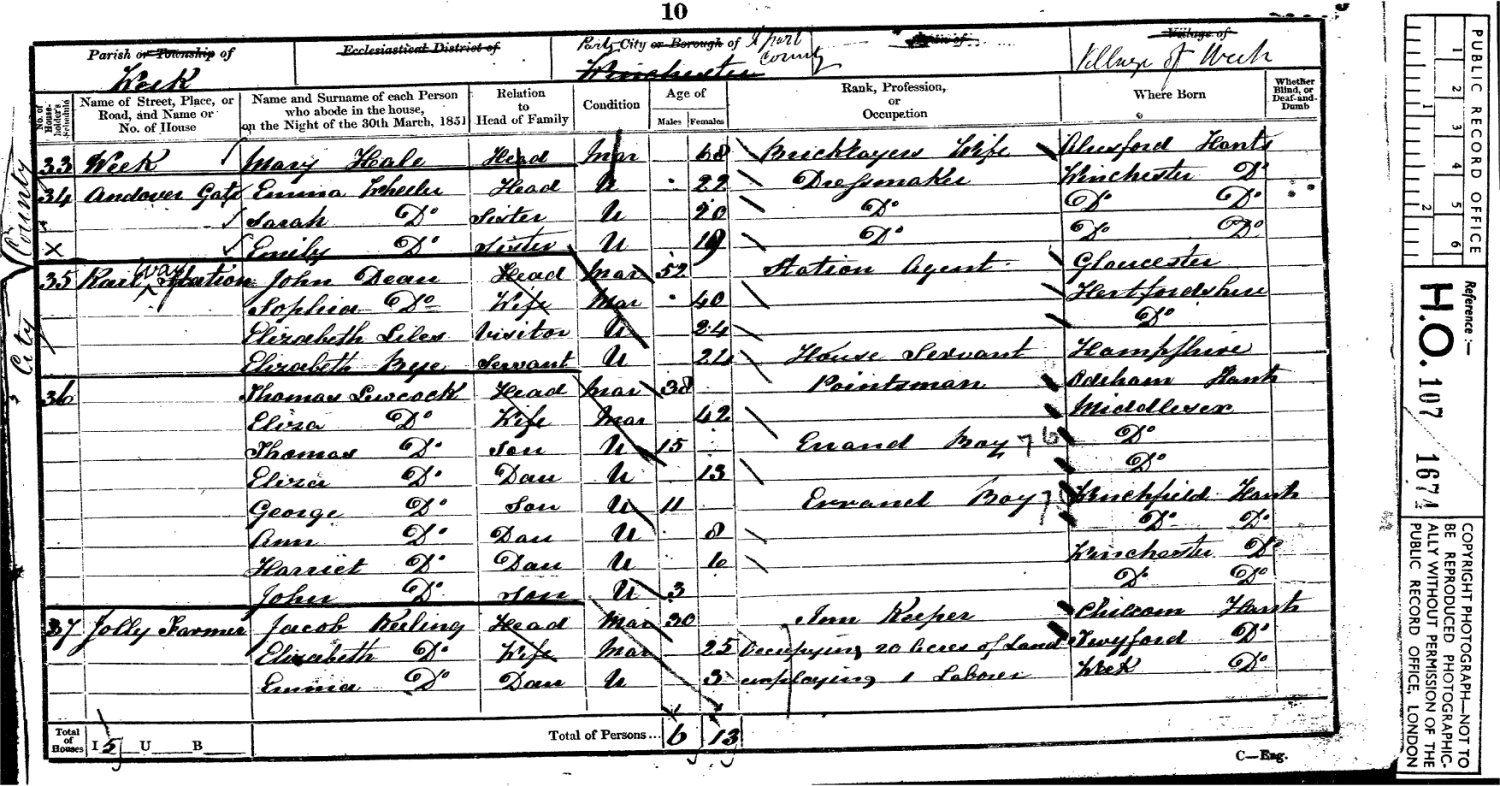 10
Parish or Township of Ecclesiastical District of Part City or Borough of & part County Town of Village of
Week Winchester Village of Week
No. of House-holder's Schedule Name of Street, Place, or Road, and Name or No. of House Name and Surname of each Person who abode in the house, on the Night of the 30th March, 1851 Relation to Head of Family Condition Age of Males Females Rank, Profession, or Occupation Where Born Whether Blind, or Deaf-and-Dumb
County
33 Week Mary Hale Head Mar 68 Bricklayers Wife Alresford Hants
34 Andover Gate Emma Wheeler Head U 22 Dressmaker Winchester Do
Sarah Do Sister U 20 Do Do Do
Emily Do Sister U 19 Do Do Do
City
35 Railway Station John Dean Head Mar 52 Station Agent Gloucester
Sophia Do Wife Mar 40 Hertfordshire
Elizabeth Liles Visitor U 24 Do
Elizabeth Beye Servant U 24 House Servant Hampshire
36 Thomas Lewcock Head Mar 38 Pointsman Odiham Hants
Eliza Do Wife Mar 42 Middlesex
Thomas Do Son U 15 Errand Boy Do
Eliza Do Dau U 13 Do
George Do Son U 11 Errand Boy Winchfield Hants
Ann Do Dau U 8 Do Do
Harriet Do Dau U 6 Winchester Do
John Do Son U 3 Do Do
37 Jolly Farmer Jacob Keiling Head Mar 30 Inn Keeper Chilcom Hants
Elizabeth Do Wife Mar 25 Occupying 20 Acres of Land Twyford Do
Emma Do Dau U 3 employing 1 Laborer Week Do
Total of Houses I 5 U B Total of Persons... 6 13
C—Eng.
PUBLIC RECORD OFFICE
1 2 3 4 5 6
1 2
Reference :—
H.O. 107 1674
COPYRIGHT PHOTOGRAPH—NOT TO
BE REPRODUCED PHOTOGRAPHIC-
ALLY WITHOUT PERMISSION OF THE
PUBLIC RECORD OFFICE, LONDON